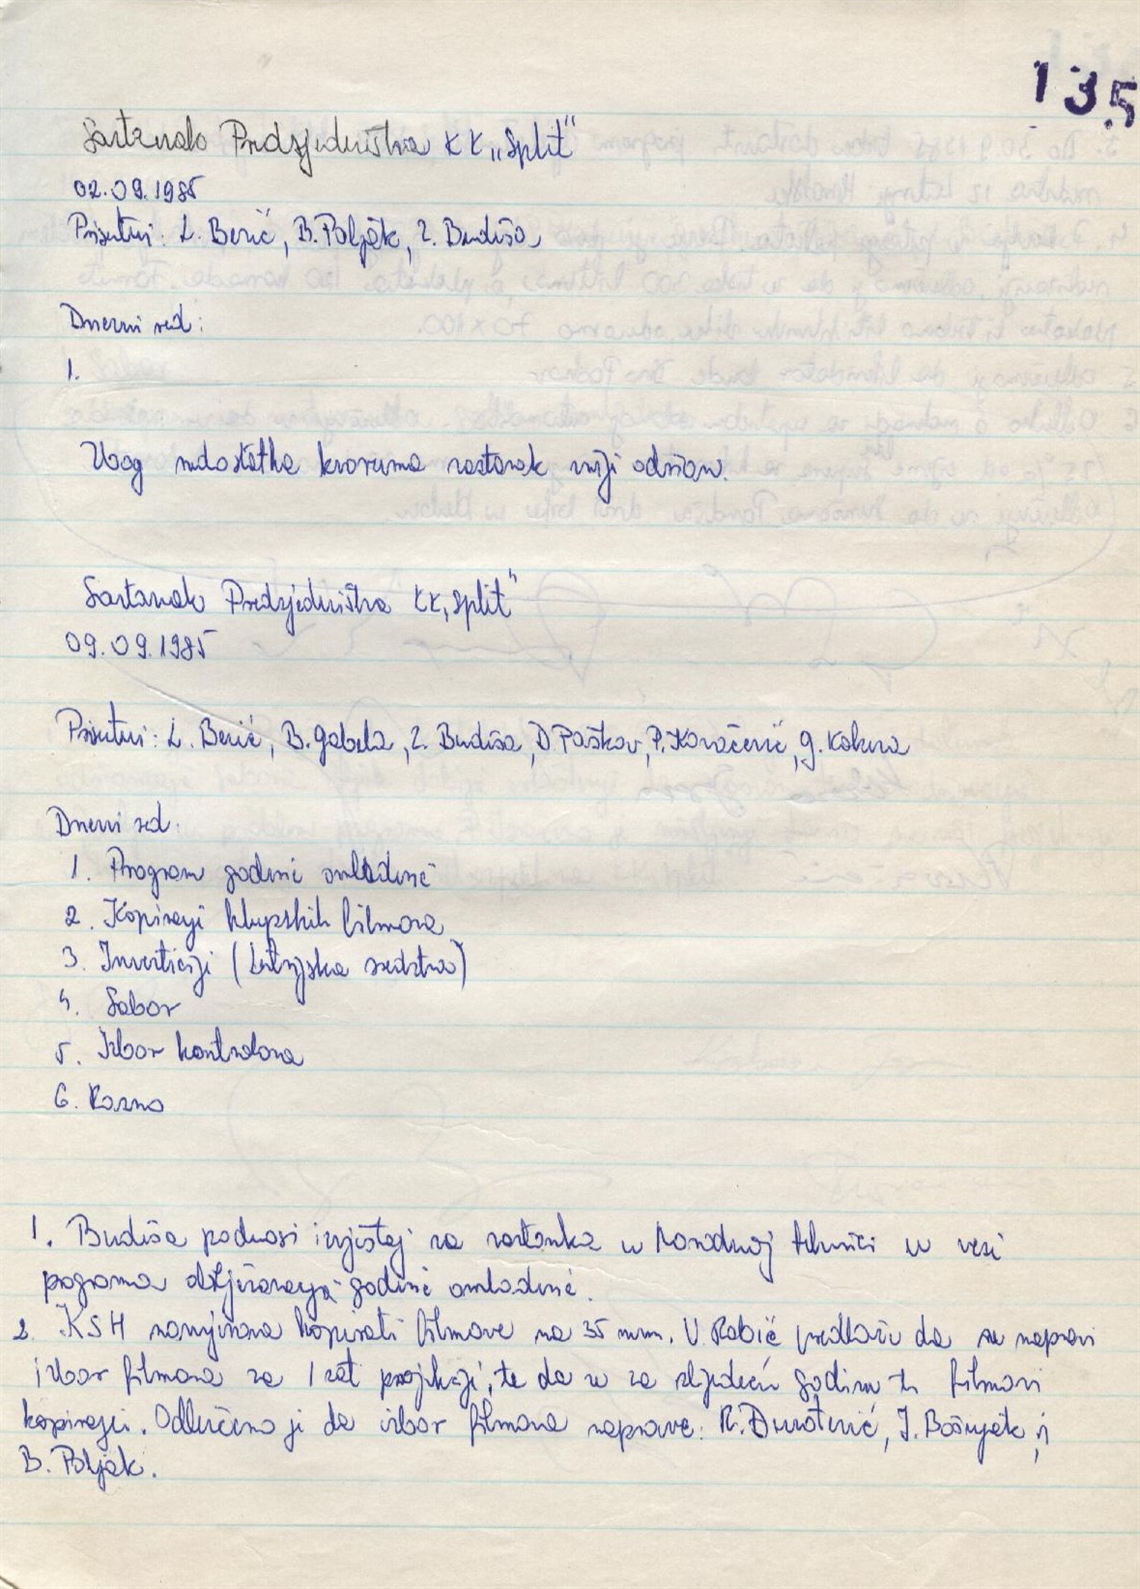 135
Sastanak Predsjedništva KK „Split"
02.09.1985
Prisutni: L. Berić, B. Poljak, Z. Budiša
Dnevni red:
1.
Zbog nedostatka kvoruma sastanak nije održan.
Sastanak Predsjedništva KK „Split"
09.09.1985
Prisutni: L. Berić, B. Gabela, Z. Budiša, D. Paškov, P. Kovačević, G. Kokeza
Dnevni red:
1. Program godine omladine
2. Kopiranje klupskih filmova
3. Investicije (Lutrijska sredstva)
4. Sabor
5. Izbor kontrolora
6. Razno
1. Budiša podnosi izvještaj sa sastanka u Narodnoj tehnici u vezi
programa obilježavanja godine omladine.
2. KSH namjerava kopirati filmove na 35 mm. V. Robić predlaže da se napravi
izbor filmova za 1 sat projekcije, te da se za sljedeću godinu ti filmovi
kopiraju. Odlučeno je da izbor filmova naprave: R. J. Bošnjak i
B. Poljak.